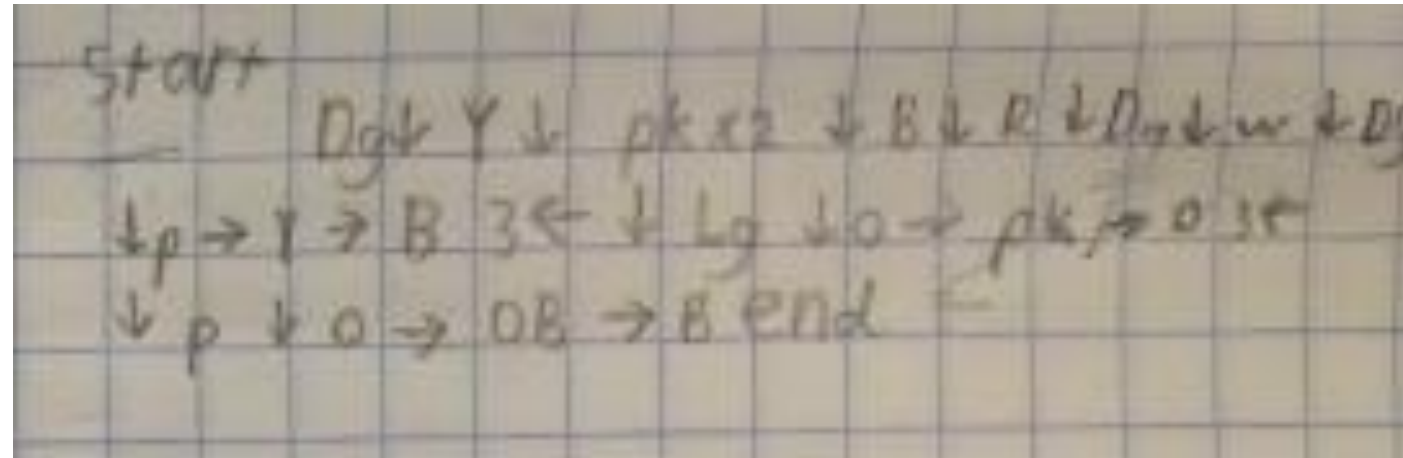 Start
Dg↓ Y ↓ pkx2 ↓ B ↓ R ↓ Dg ↓ w ↓ Dg
↓p → Y → B 3← ↓ Lg ↓o → pk → o 3←
↓ p ↓ o → OB → B end